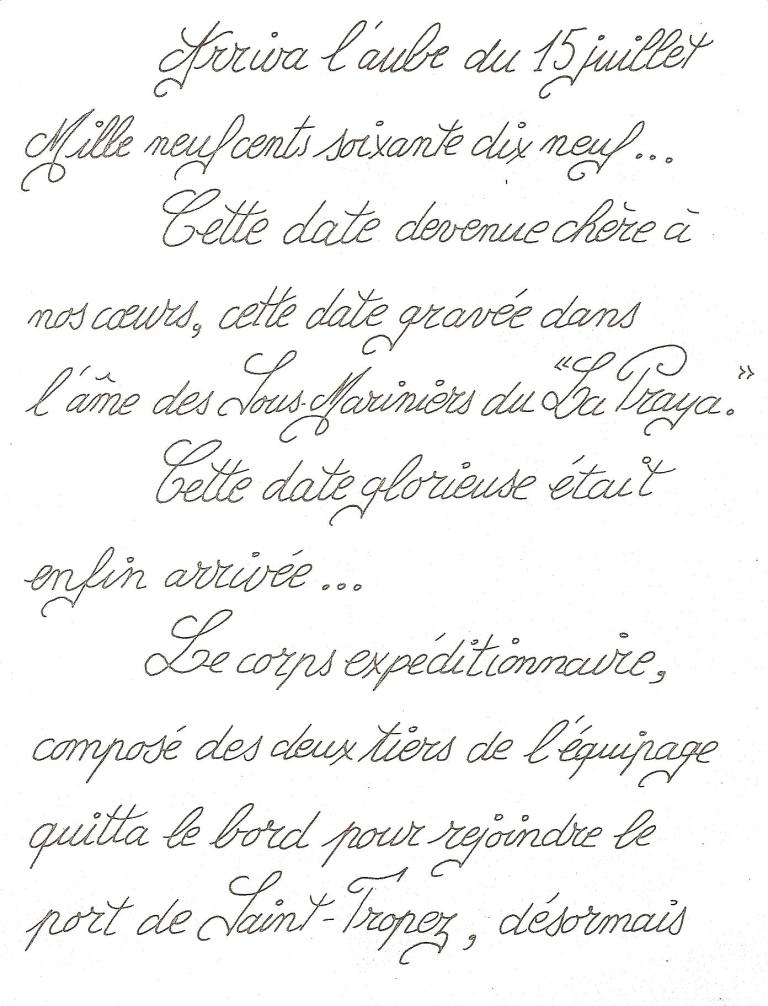 Arriva l'aube du 15 juillet
Mille neuf cents soixante dix neuf...
Cette date devenue chère à
nos cœurs, cette date gravée dans
l'âme des Sous-Mariniers du "La Praya."
Cette date glorieuse était
enfin arrivée...
Le corps expéditionnaire,
composé des deux tiers de l'équipage
quitta le bord pour rejoindre le
port de Saint-Tropez, désormais